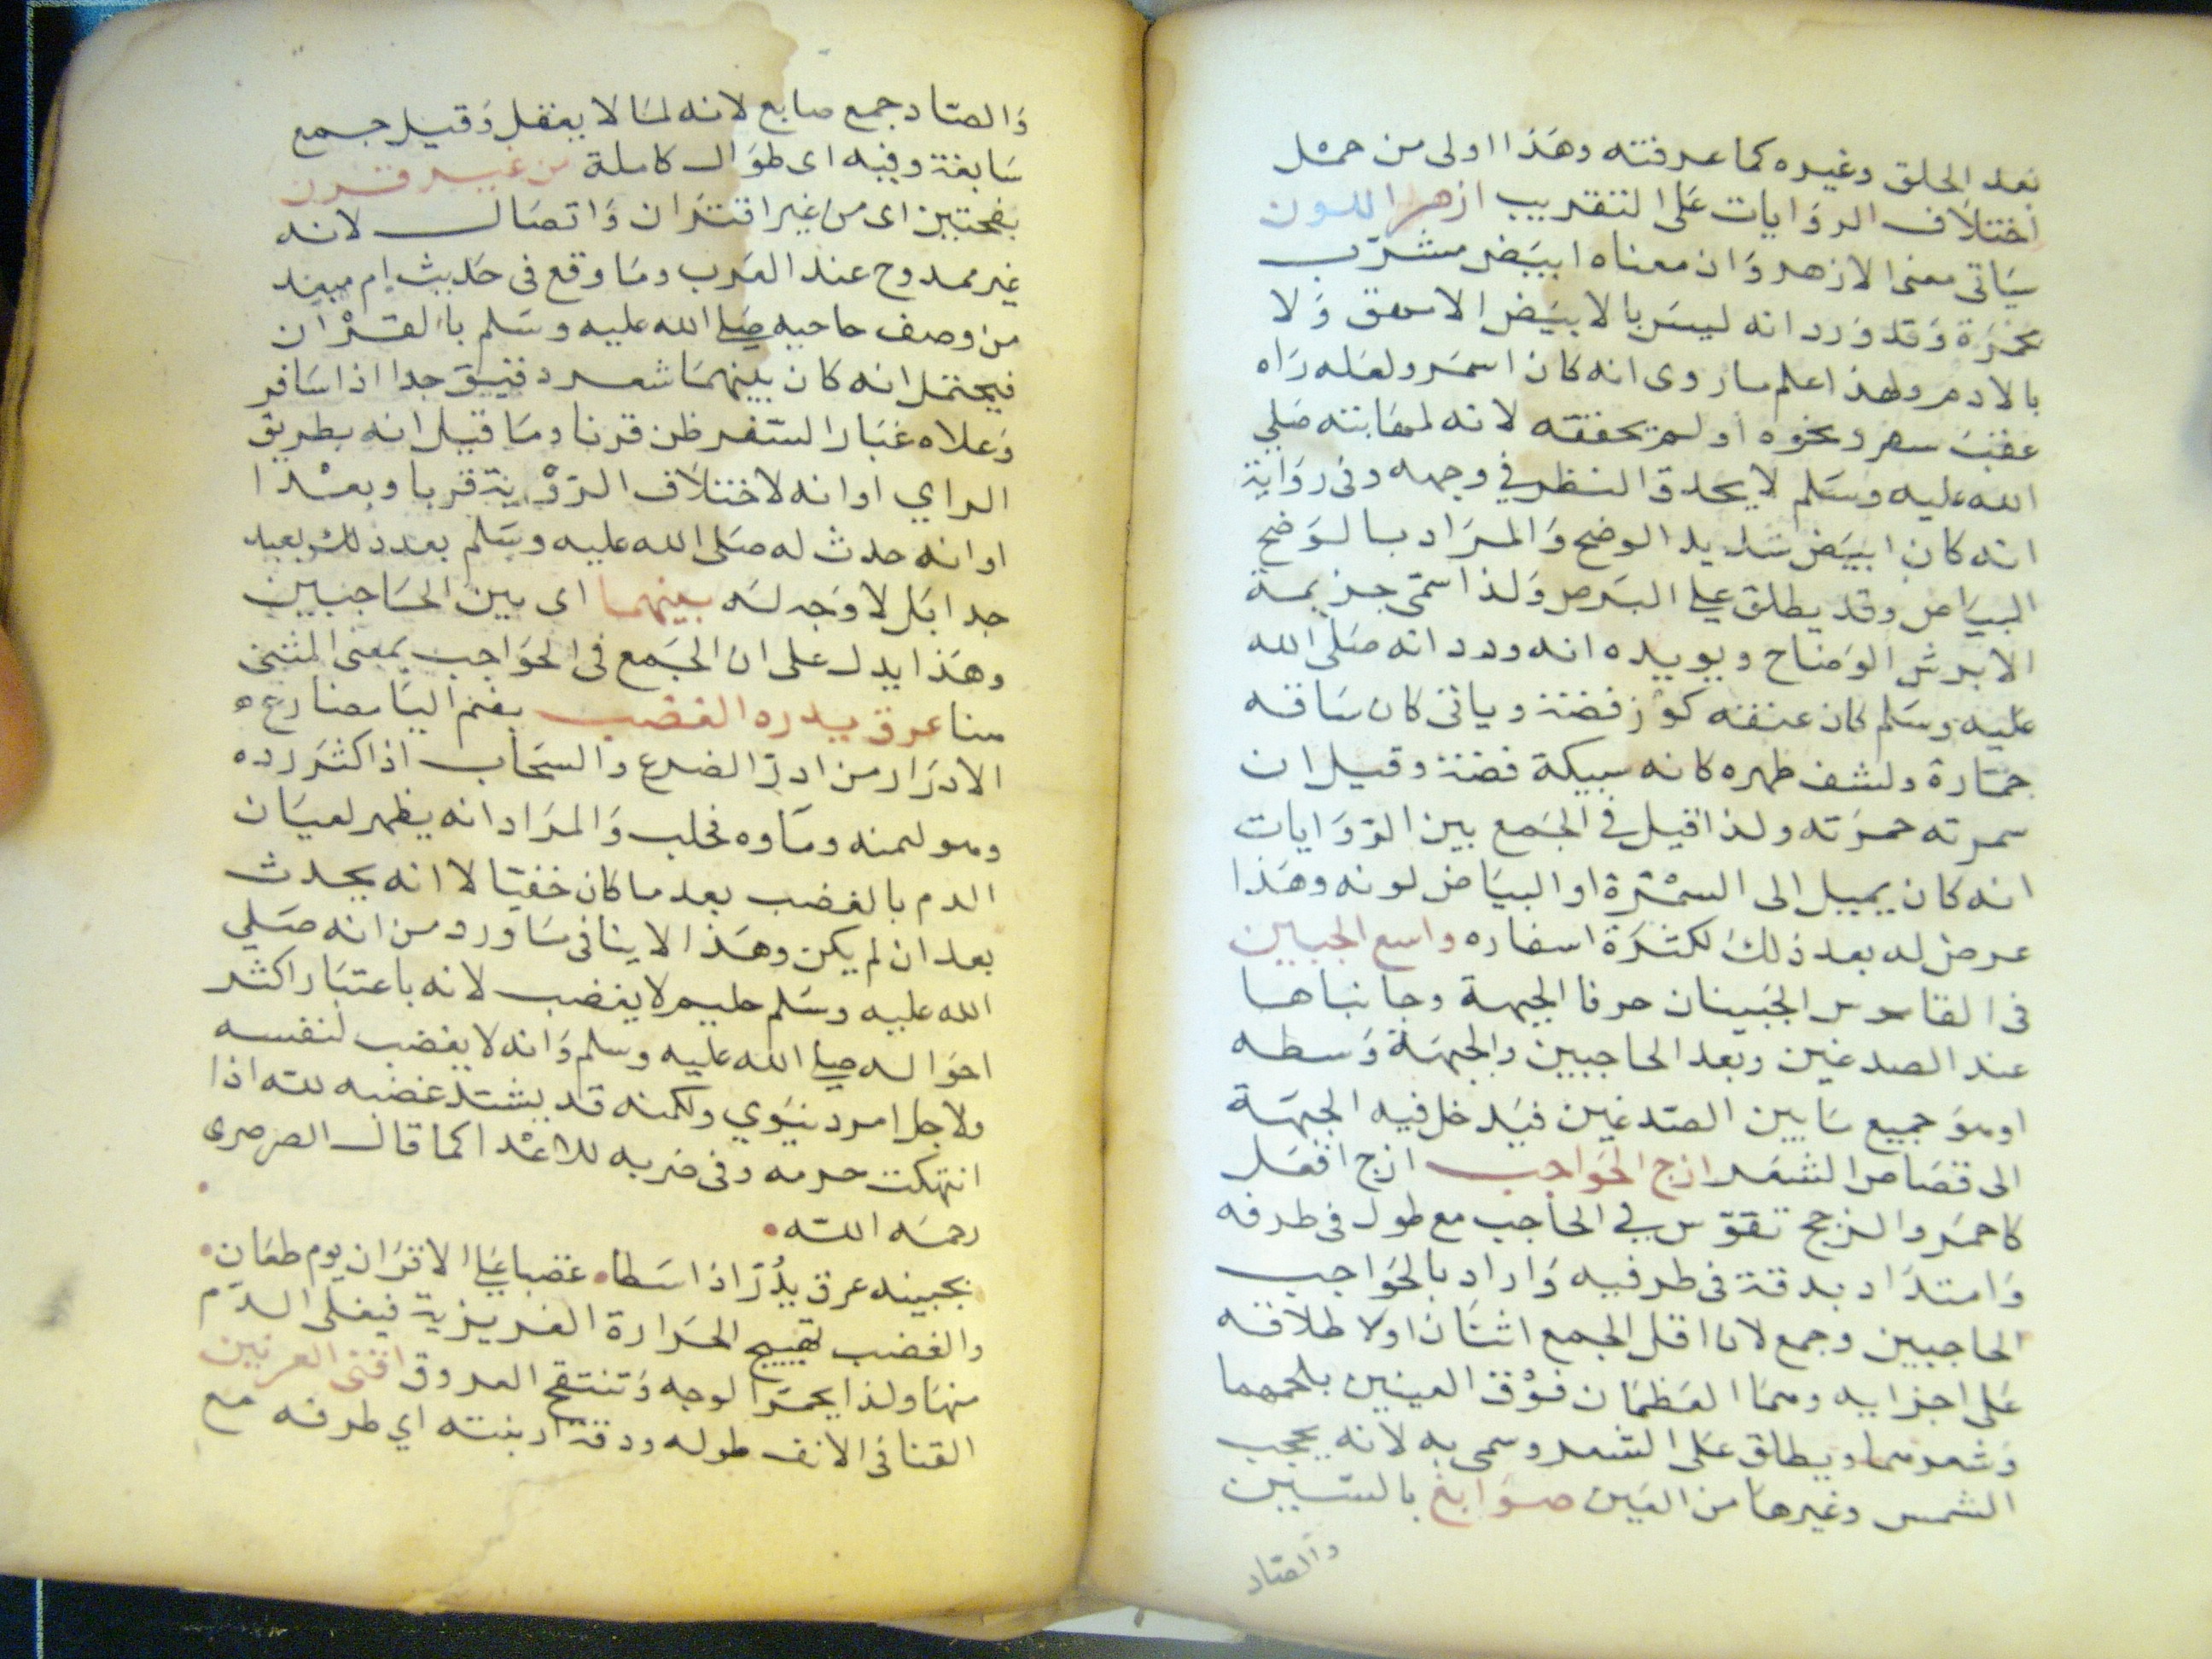 بعد الحلق وغيره كما عرفته وهذا اولى من حمل
اختلاف الروايات على التقريب ازهر اللون
سياتى معنى الازهر وان معناه ابيض مشرب
بحمرة وقد ورد انه ليس بالابيض الامهق ولا
بالادم ولهذا اعلم ما روى انه كان اسمر ولعله رآه
عقب سفر ونحوه او لم يحققه لانه لمهابته صلى
الله عليه وسلم لا يحدق النظر في وجهه وفى رواية
انه كان ابيض شديد الوضح والمراد بالوضح
البياض وقد يطلق على البرص ولذا سمى جذيمة
الابرش الوضاح ويويده انه ورد انه صلى الله
عليه وسلم كان عنقه كوز فضة وياتى كان ساقه
جمارة ولشف ظهره كانه سبيكة فضة وقيل ان
سمرته حمرته ولذا قيل في الجمع بين الروايات
انه كان يميل الى السمرة او البياض لونه وهذا
عرض له بعد ذلك لكثرة اسفاره واسع الجبين
فى القاموس الجبينان حرفا الجبهة وجانباها
عند الصدغين وبعد الحاجبين والجبهة وسطه
او هو جميع ما بين الصدغين فيدخل فيه الجبهة
الى قصاص الشعر ازج الحواجب ازج افعل
كاحمر والزجج تقوس في الحاجب مع طول فى طرفه
وامتداد بدقة فى طرفيه واراد بالحواجب
الحاجبين وجمع لان اقل الجمع اثنان او لاطلاقه
على اجزايه وهما العظمان فوق العينين بلحمهما
وشعرهما ويطلق على الشعر وسمى به لانه يحجب
الشمس وغيرها من العين صوابغ بالسين
والصاد
والصاد جمع صابغ لانه لما لا يعقل وقيل جمع
سابغة وفيه اى طوال كاملة من غير قرن
بفتحتين اى من غير اقتران واتصال لانه
غير ممدوح عند العرب وما وقع فى حديث ام معبد
من وصف حاجبه صلى الله عليه وسلم بالقرْان
فيحتمل انه كان بينهما شعر دقيق جدا اذا سافر
وعلاه غبار السفر ظن قرنا وما قيل انه بطريق
الراي او انه لاختلاف الروية قربا وبعدا
او انه حدث له صلى الله عليه وسلم بعد ذلك بعيد
جدا بل لا وجه له بينهما اى بين الحاجبين
وهذا يدل على ان الجمع فى الحواجب بمعنى المثنى
هنا عرق يدره الغضب بضم اليا مضارع
الادرار من ادر الضرع والسحاب اذا كثر رده
وهو لبنه وماوه فحلب والمراد انه يظهر لعيان
الدم بالغضب بعد ما كان خفيا لا انه يحدث
بعد ان لم يكن وهذا لا ينافى ما ورد من انه صلي
الله عليه وسلم حليم لا يغضب لانه باعتبار اكثر
احواله صلى الله عليه وسلم وانه لا يغضب لنفسه
ولاجل امر دنيوي ولكنه قد يشتد غضبه لله اذا
انتهكت حرمه وفى ضربه للاعدا كما قال الصرصرى
رحمه الله
بجبينه عرق يدُرّ اذا سطا غضبا على الاقران يوم طعان
والغضب تهييج الحرارة الغريزية فيغلى الدم
منها ولذا يحمر الوجه وتنتفخ العروق اقنى العرنين
القنا فى الانف طوله ودقة ارنبته اي طرفه مع